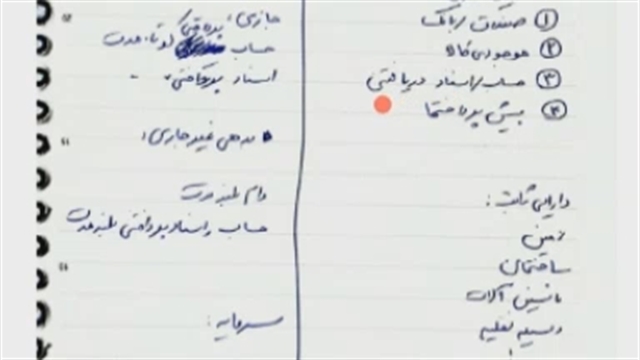 ① صندوق / بانک
② موجودی کالا
③ حساب / اسناد دریافتنی
④ پیش پرداختها
دارایی ثابت :
زمین
ساختمان
ماشین آلات
وسیله نقلیه
جاری:
حساب کوتاه مدت
اسناد پرداختنی
• بدهی غیر جاری :
وام بلند مدت
حساب و اسناد پرداختنی بلند مدت
سرمایه :